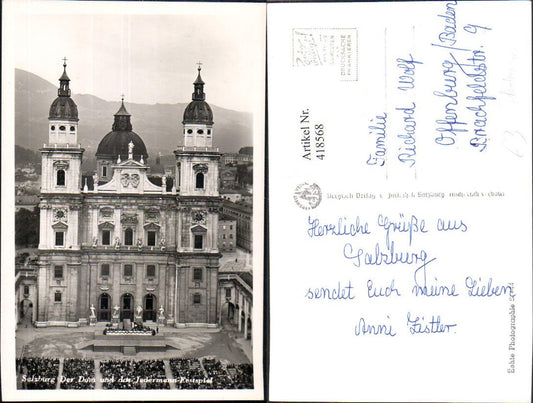 Salzburg Der Dom und das Jedermann-Festspiel
Artikel Nr.
418568
Familie
Richard Wolf
Offenburg/Baden
Drachfeldstr. 9
Herrliche Grüße aus
Salzburg
sendet Euch meine Lieben
Anni Zistler.
Echte Photographie